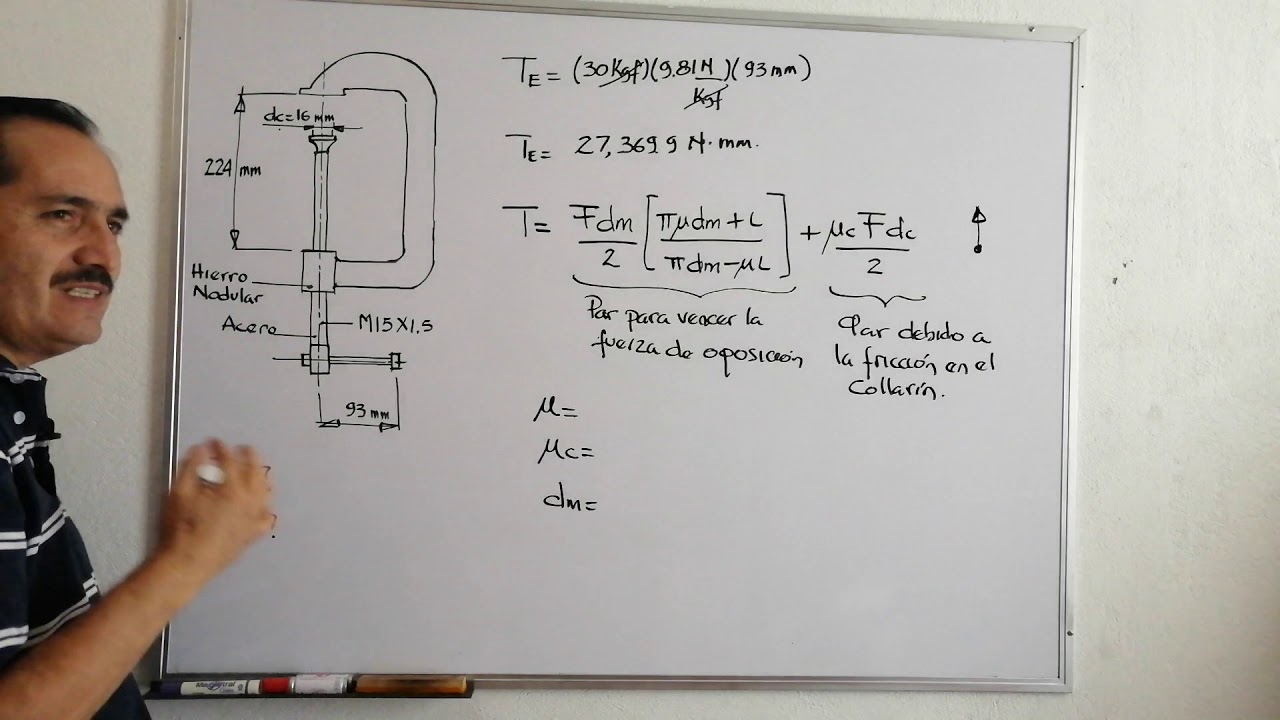 dc=16 mm
224 mm
Hierro
Nodular
Acero
M15X1.5
93 mm
?
?
TE= (30Kgf)(9.81N/Kgf)(93mm)
TE= 27,369.9 N·mm.
T= Fdm/2 [πμdm+L/πdm-μL] + μcFdc/2
Par para vencer la
fuerza de oposición
Par debido a
la fricción en el
Collarín.
μ=
μc=
dm=